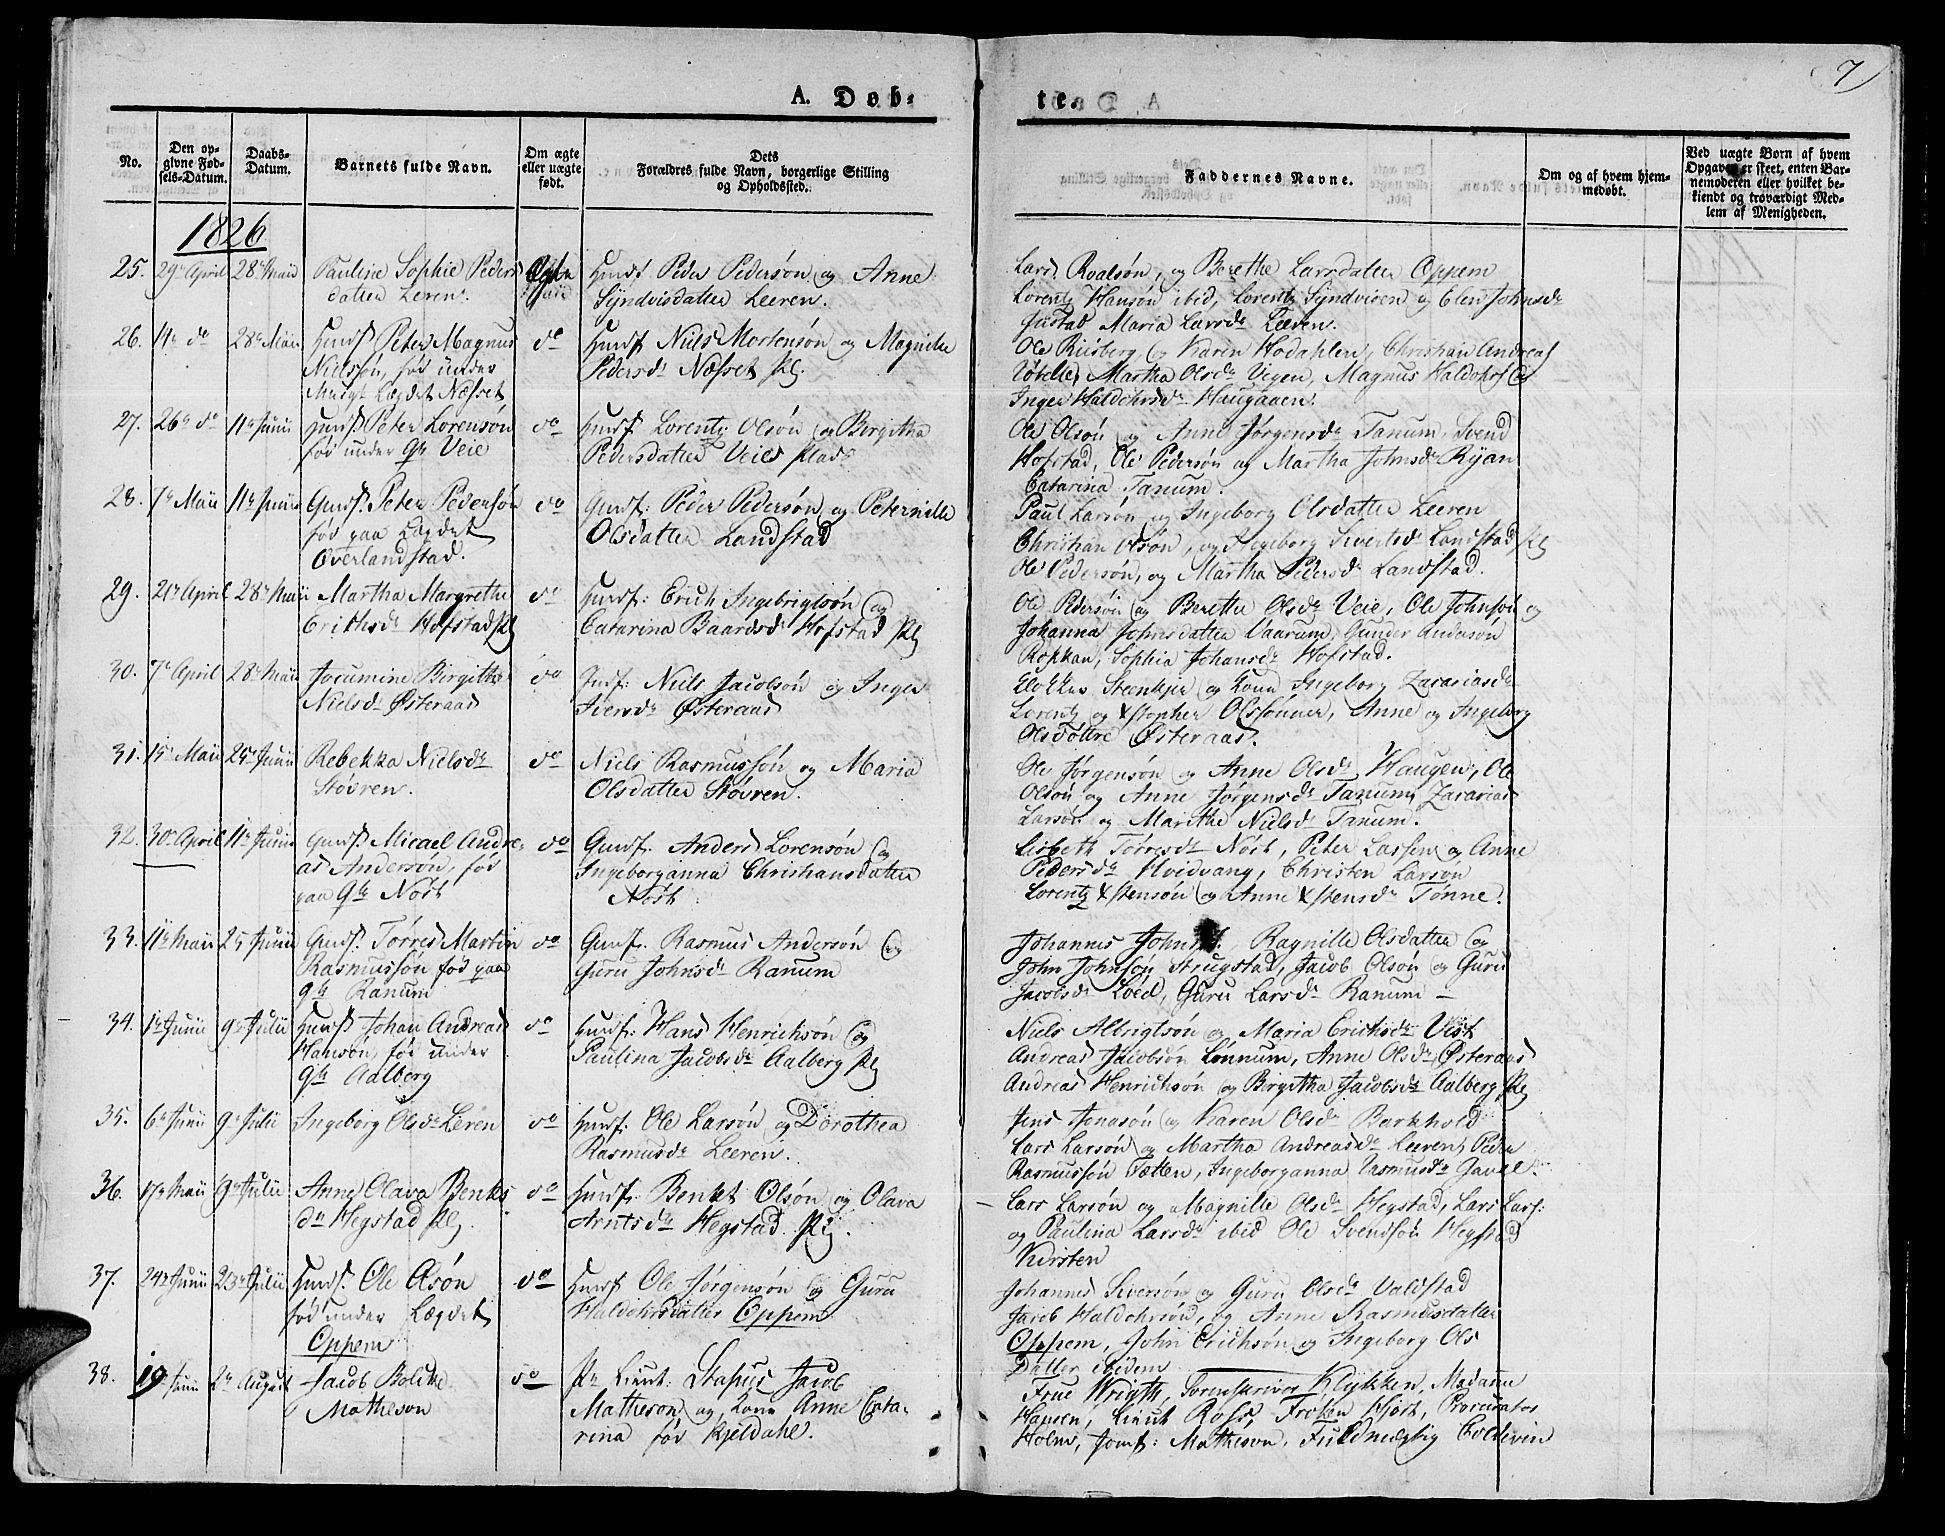 7
A. Døb-
te.
No.
Den op-
givne Fød-
sels-Datum.
Daabs-
Datum.
Barnets fulde Navn.
Om ægte
eller uægte
født.
Dets
Forældres fulde Navn, borgerlige Stilling
og Opholdssted.
Faddernes Navne.
Om og af hvem hjem-
medøbt.
Ved uægte Børn af hvem
Opgaven er skeet, enten Bar-
nemoderen eller hvilket be-
kiendt og troværdigt Med-
lem af Menigheden.
1826
25. 29de April 28de Maii Pauline Sophie Peders
datter Leren. Ægte
Huusf Peder Pedersøn og Anne
Syndvisdatter Leeren.
Lars Roalsøn, og Berethe Larsdatter Oppem
Lorentz Hansøn ibid, Lorentz Syndvisen og Elen Johnsdr
Justad Maria Larsdr Leeren.
26. 14de do 28de Maii Huusf Peter Magnus
Nielsøn, fød under
Musgt Lægdet Næsset
do
Huusf Niels Mortensøn og Magnille
Pedersdr Næsset Pl.
Ole Riisberg og Karen Hodahlen, Christian Andreas
Martha Olsdr Vegen, Magnus Haldohrs og
Inger Haldohrsdr Haugaaen.
27. 26de do 11te Junii Huusf Peter Lorensøn
fød under Gde Veie
do
Huusf Lorentz Olsøn og Birgitha
Pedersdatter Veies Plads
Ole Olsøn og Anne Jørgensdr Tanum, Svend
Hofstad, Ole Pedersøn og Martha Johnsdr Ryan
Catarina Tanum.
28. 7de Maii 11te Junii Gaardf. Peter Pedersøn
fød paa Lægdet
Overlandstad.
do
Gaardf: Peder Pedersøn og Peternille
Olsdatter Landstad
Paul Larsøn og Ingeborg Olsdatter Leeren
Christian Olsøn, og Ingeborg Sivertsdr Landstad Pl
Ole Pedersøn, og Martha Pedersdr Landstad.
29. 21de April 28de Maii Martha Margrethe
Erichsdr Hofstad Pl
do
Huusf: Erich Ingebrigtsøn og
Catarina Baardsdr Hofstad Pl
Ole Pedersøn og Berethe Olsdr Veie, Ole Johnsøn og
Johanna Johnsdatter Vaarum, Gunder Andersøn
Rokkan, Sophia Johansdr Hofstad.
30. 7de April 28de Maii Jocumine Birgithe
Nielsdr Østeraas
do
Indf: Niels Jacobsøn og Inger
Iversdr Østeraas
Steenkjer og Kone Ingeborg Zacariasdr
Lorentz og Xstopher Olssønner, Anne og Ingeborg
Olsdøttre Østeraas.
31. 15de Maii 25de Junii Rebekka Nielsdr
Støvren.
do
Niels Rasmussøn og Maria
Olsdatter Støvren.
Ole Jørgensøn og Anne Olsdr Haugen, Ole
Olsøn og Anne Jørgensdr Tanum, Zacarias
Larsøn og Marithe Nielsdr Tanum.
32. 30de April 11te Junii Gaardf Micael Andre-
as Andersøn, fød
paa Gde Nøst
do
Gaardf. Anders Lorensøn og
Ingeborganna Christiansdatter
Nøst
Lisbeth Torresdr Nøst, Peter Larsen og Anne
Pedersdr Hvidvang, Christen Larsøn
Lorentz Xstensøn og Anne Xstensdr Tønne.
33. 11te Maii 25 Junii Gaardf. Tørres Martin
Rasmussøn fød paa
gde Ranum
do
Gaardf. Rasmus Andersøn og
Guru Johnsdr Ranum
Johannes Ragnille Olsdatter og
John Johnsøn Strugstad, Jacob Olsøn og Guru
Jacobsdr Loed, Guru Larsdr Ranum —
34. 1te Junii 9de Julii Huusf Johan Andreas
Hansøn, fød under
gde Aalberg
do
Huusf: Hans Henrichsøn og
Paulina Jacobsdr Aalberg Pl
Niels Albrigtsøn og Maria Erichsdr Vist
Andreas Jacobsøn Lønnum, Anne Olsdr Østeraas
Andreas Henrichsøn og Birgitha Jacobsdr Aalberg Pl
35. 6te Junii 9de Julii Ingeborg Olsdr Leren
do
Huusf: Ole Larsøn og Dorothea
Rasmusdr Leeren.
Jens Jonasøn og Karen Olsdr Barkhold
Lars Larsøn og Martha Andreasdr Leeren, Peder
Rasmussøn Tætten, Ingeborganna Rasmusdr
36. 17de Maii 9de Julii Anne Olava Bents
dr Hegstad Pl.
do
Huusf: Bentet Olsøn og Olava
Arntsdr Hegstad Pl.
Lars Larsøn og Magnille Olsdr Hegstad, Lars Lars:
og Paulina Larsdr ibid Ole Svendsøn Hegstad
Kirsten
37. 24de Junii 23de Julii Huusf. Ole Olsøn
fød under Lægdet
Oppem
do
Huusf Ole Jørgensøn og Guru
Haldohrsdatter Oppem
Johannes Siversøn og Guru Olsdr Valdstad
Jacob Haldohrsøn, og Anne Rasmusdatter
Oppem, John Erichsøn og Ingeborg Ols
Datter ibidem
38. 19 Junii 2de August Jacob Bolithe
Matheson
do
Pr Lieut: Jacob
Matheson og Kone Anne Cata-
rina fød Kjeldahl.
Frue Wrigth, Klykken, Madame
Hansen, Lieut Ross, Frøken Hjort, Procurator
Holm, Jomf: Matheson, Fuldmægtig Coldevin